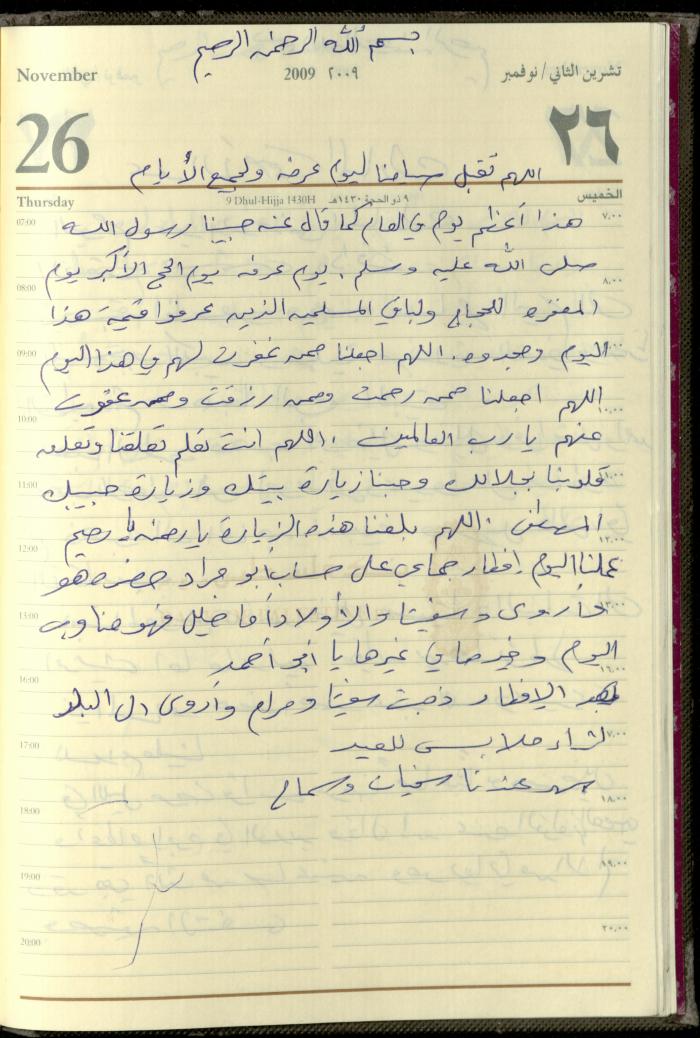 بسم الله الرحمن الرحيم
November 2009 ٢٠٠٩ تشرين الثاني / نوفمبر
26 ٢٦
اللهم تقبل صيامنا ليوم عرفه ولجميع الأيام
Thursday 9 Dhul-Hijja 1430H ٩ ذو الحجة ١٤٣٠هـ الخميس
07:00 هذا أعظم يوم في العام كما قال عنه حبيبنا رسول الله ٧,٠٠
صلى الله عليه وسلم . يوم عرفه يوم الحج الأكبر يوم ٨,٠٠
08:00 المغفره للحجاج ولباقي المسلمين الذين عرفوا قيمة هذا
09:00 اليوم . اللهم اجعلنا ممن غفرت لهم في هذا اليوم
اللهم اجعلنا ممن رحمت وممن رزقت وممن عفوت ١٠,٠٠
10:00 عنهم يا رب العالمين . اللهم انت تعلم تعلقنا وتعلق
11:00 قلوبنا بجلالك وحبنا زيارة بيتك وزيارة حبيبك ١١,٠٠
المصطفى . اللهم بلغنا هذه الزيارة يا رحمن يا رحيم ١٢,٠٠
12:00 عملنا اليوم إفطار جماعي على حساب ابو مراد حضره هو
13:00 وأروى وسفيتا والأولاد أما خليل فهو مناوب
اليوم وخيرها في غيرها يا ابو أحمد ١٦,٠٠
16:00 بعد الإفطار ذهبت سفيتا ومرام وأروى الى البلد
17:00 لشراء ملابس للعيد ١٧,٠٠
سهر عندنا سفيان وسماح ١٨,٠٠
18:00
19:00 ١٩,٠٠
20:00 ٢٠,٠٠